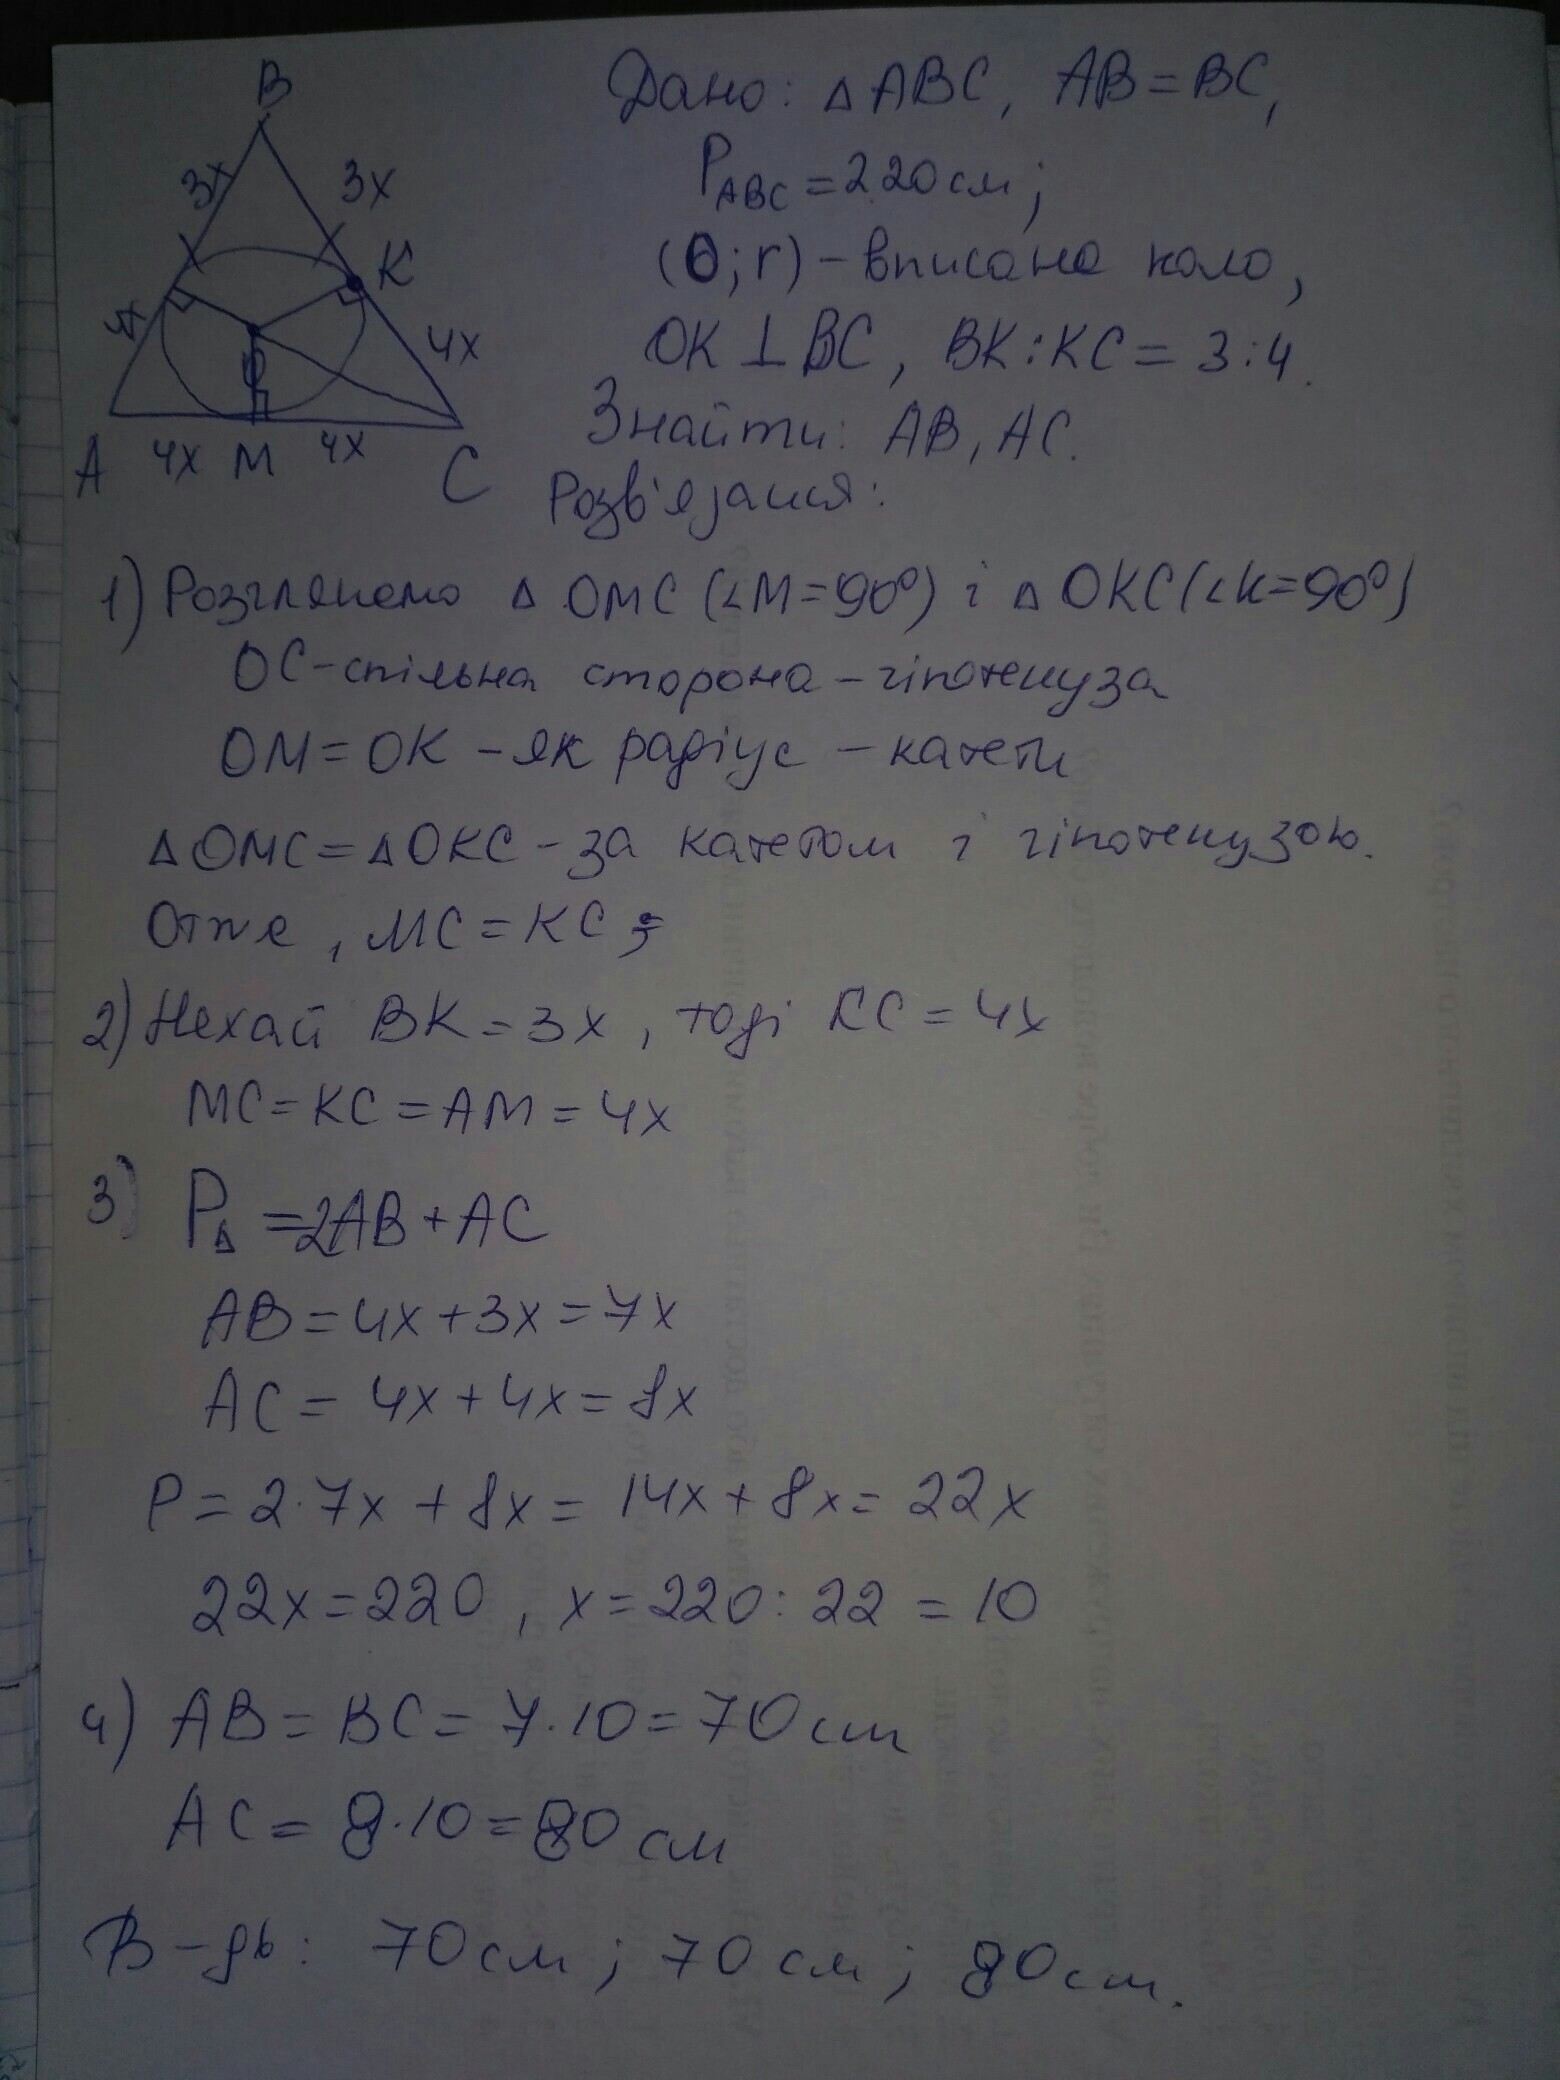 B
3x 3x
K
4x
O
A 4x M 4x C
Дано: △ABC, AB=BC,
P_ABC = 220 см;
(O; r) – вписане коло,
OK⊥BC, BK:KC = 3:4.
Знайти: AB, AC.
Розв'язання:
1) Розглянемо △ OMC (∠M=90°) і △ OKC (∠K=90°)
OC – спільна сторона – гіпотенуза
OM = OK – як радіус – катети
△OMC = △OKC – за катетом і гіпотенузою.
Отже, MC = KC;
2) Нехай BK = 3x, тоді KC = 4x
MC = KC = AM = 4x
3) P_△ = 2AB + AC
AB = 4x + 3x = 7x
AC = 4x + 4x = 8x
P = 2·7x + 8x = 14x + 8x = 22x
22x = 220, x = 220 : 22 = 10
4) AB = BC = 7·10 = 70 см
AC = 8·10 = 80 см
В-дь: 70 см; 70 см; 80 см.